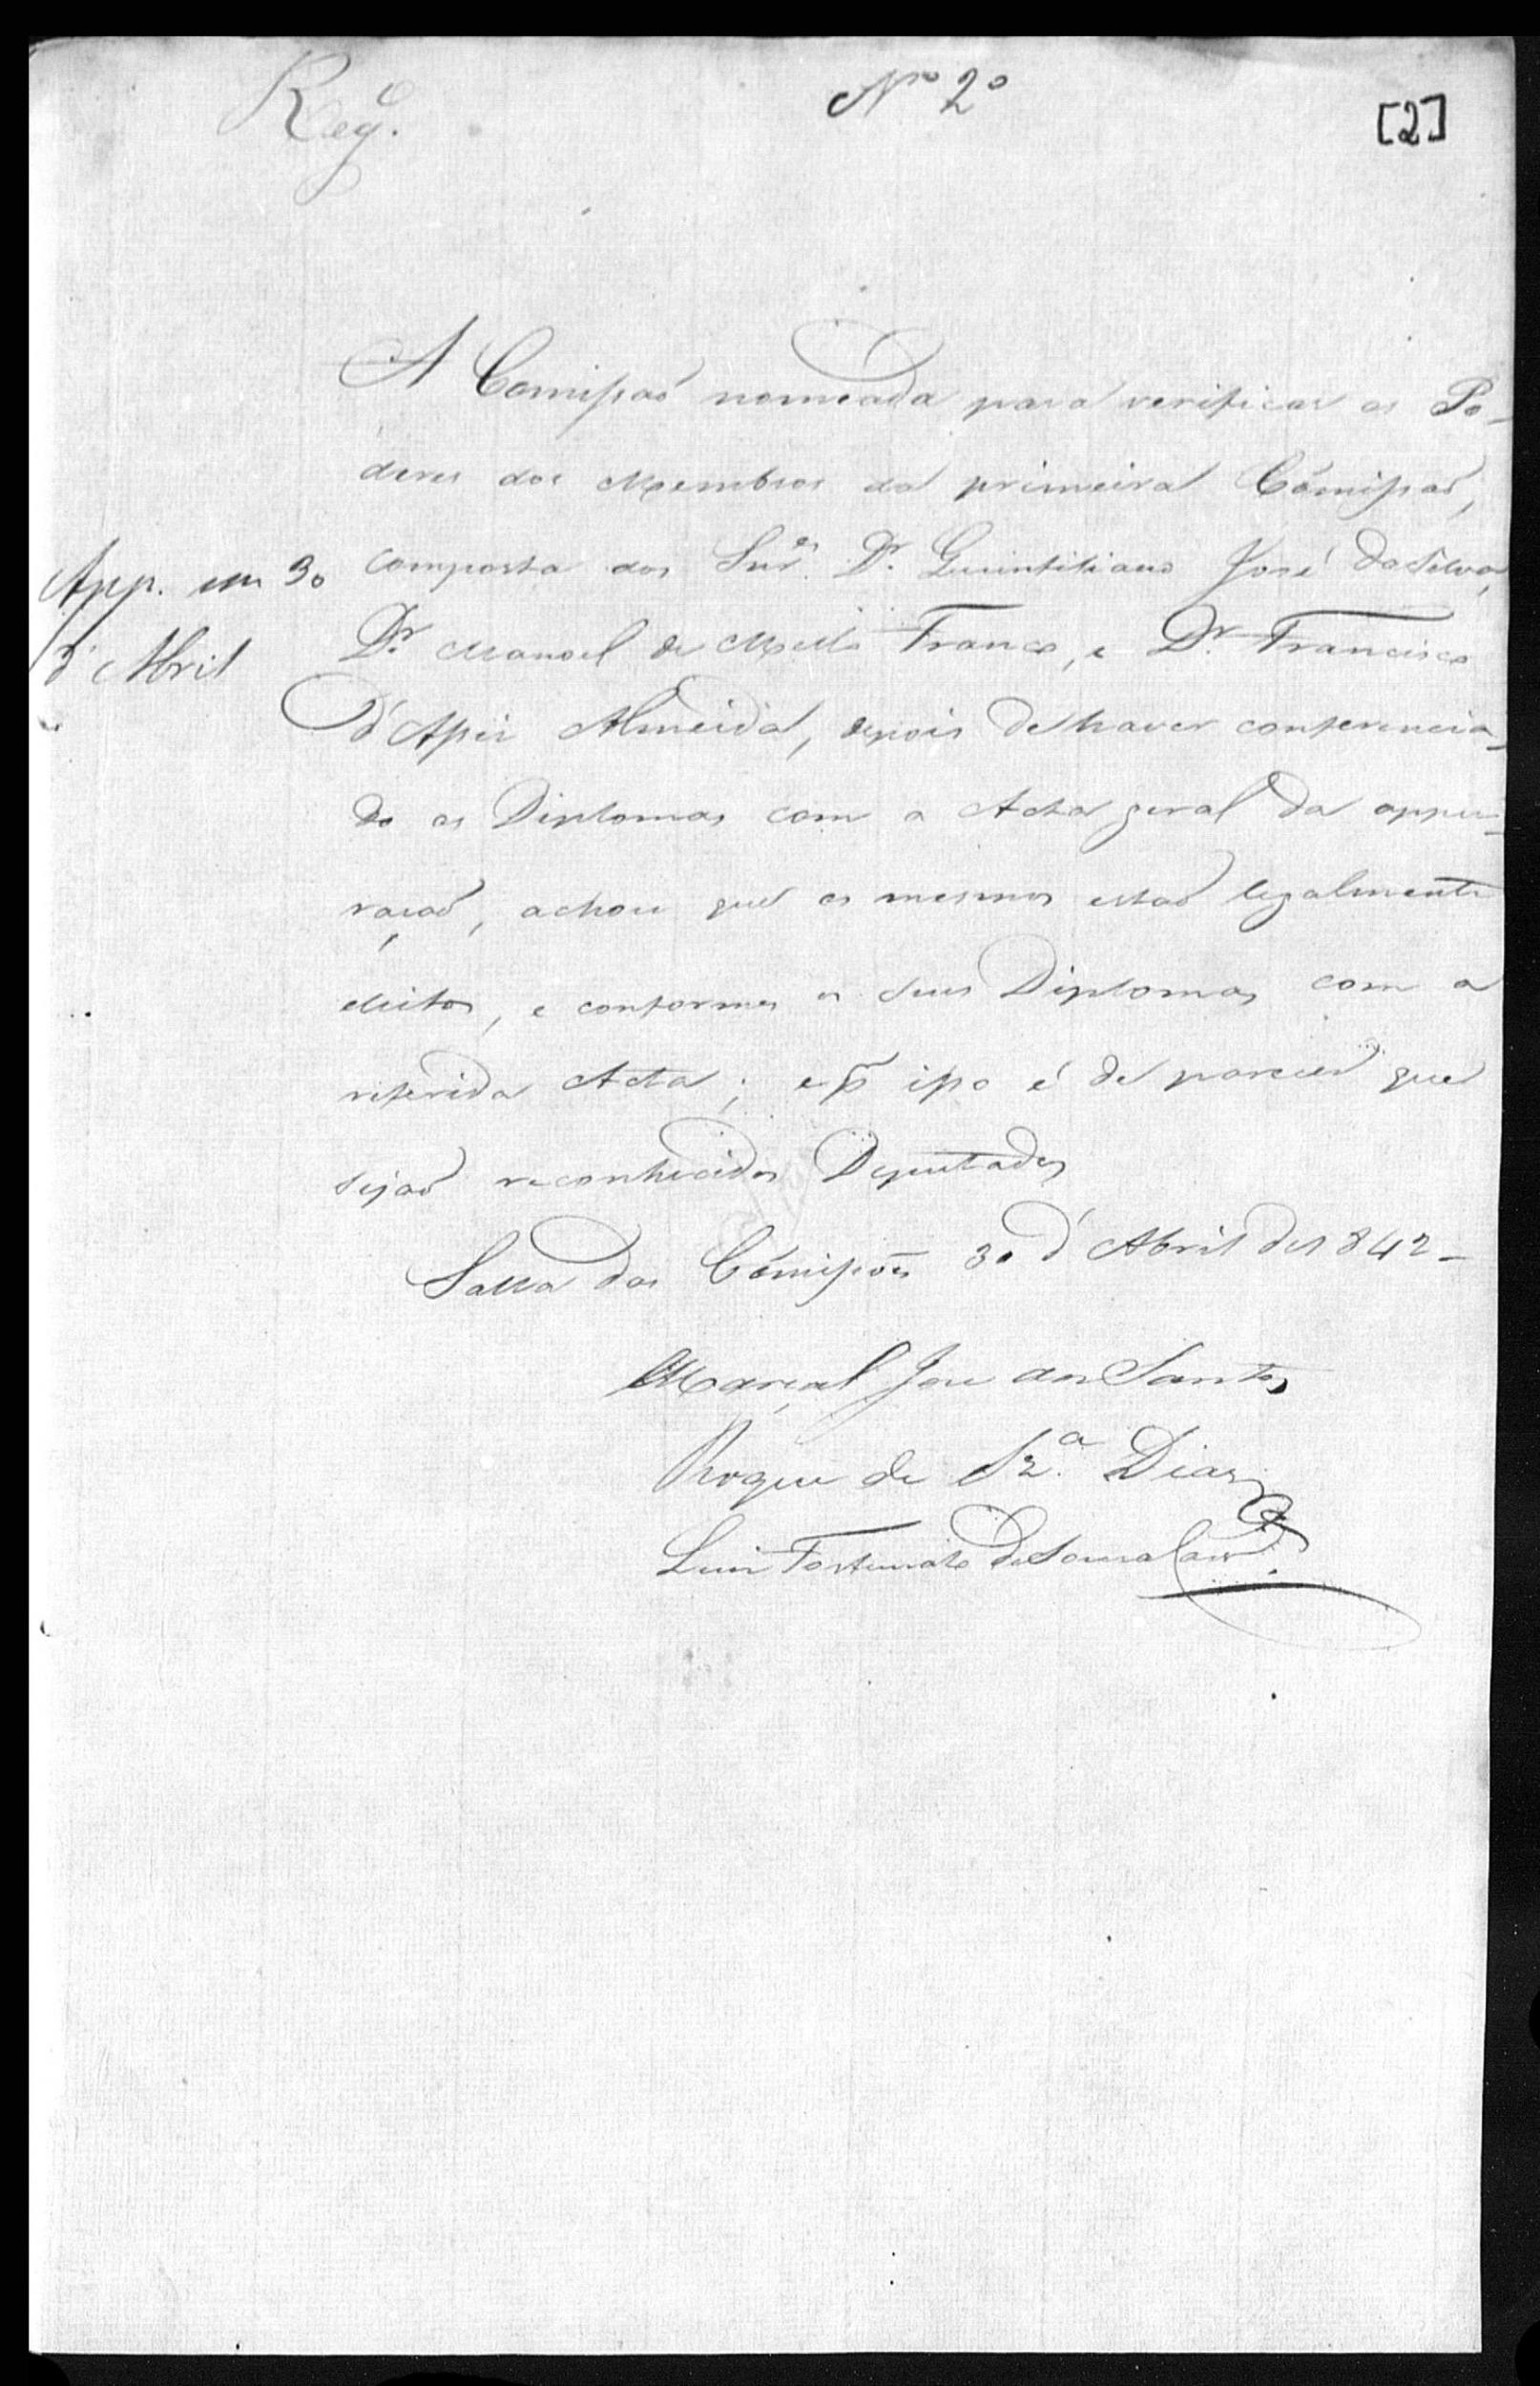 Reg.º
Nº 2º
[2]
A Comissaõ nomeada para verificar os Po-
deres dos Membros da primeira Cõmissaõ,
composta dos Snr.es Dr. Quintiliano José da Silva,
Dr. Manoel de Mello Franco, e Dr. Francisco
d'Assis Almeida, depois de haver conferencia-
do os Diplomas com a Acta geral da appu-
raçaõ, achou que os mesmos estaõ legalmente
eleitos, e conformes os seus Diplomas com a
referida Acta; e pr isso é de parecer que
sejaõ reconhecidos Deputados
Salla das Cõmissões 30 d'Abril de 1842-
App. em 30
d'Abril
Marçal José dos Santos
Roque de Sz.ª Dias
Luis Fortunato de Sousa